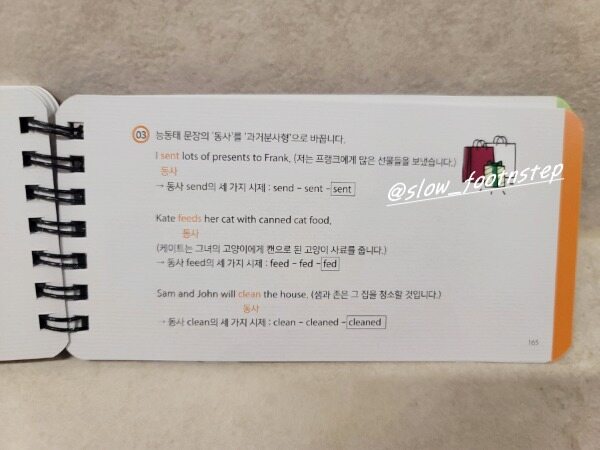 03 능동태 문장의 '동사'를 '과거분사형'으로 바꿉니다.
I sent lots of presents to Frank. (저는 프랭크에게 많은 선물들을 보냈습니다.)
동사
→ 동사 send의 세 가지 시제 : send – sent – sent
@slow_footnstep
Kate feeds her cat with canned cat food.
동사
(케이트는 그녀의 고양이에게 캔으로 된 고양이 사료를 줍니다.)
→ 동사 feed의 세 가지 시제 : feed – fed – fed
Sam and John will clean the house. (샘과 존은 그 집을 청소할 것입니다.)
동사
→ 동사 clean의 세 가지 시제 : clean – cleaned – cleaned
165